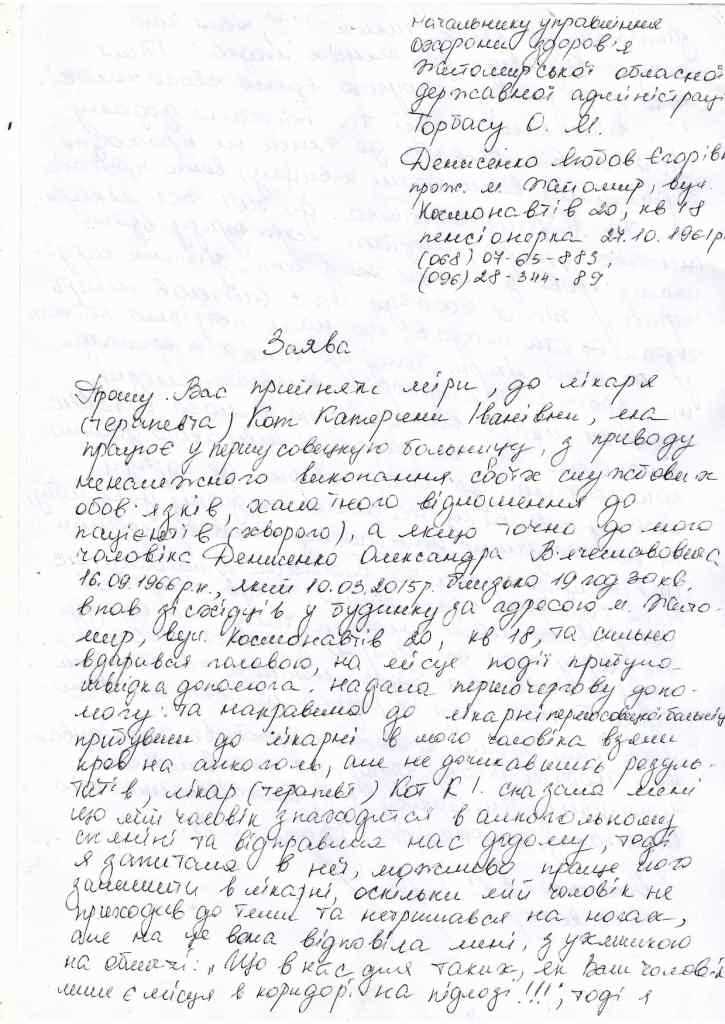 начальнику управління
охорони здоров'я
Житомирської обласної
державної адміністрац
Торбасу О. М.
Денисенко Любов Єгорівн
прож. м. Житомир, вул.
Космонавтів 20, кв 18
пенсіонерка 27.10.1961р
(068) 07-65-883,
(096) 28-344-89
Заява
Прошу Вас прийняти міри, до лікаря
(терапевта) Кот Катерини Іванівни, яка
працює у першу совецкую больницу, з приводу
неналежного виконання своїх службових
обов'язків, халатного відношення до
пацієнтів (хворого), а якщо точно до мого
чоловіка Денисенко Олександра В'ячеславовича
16.09.1966р.н., який 10.03.2015р. близько 19 год 30 хв.
впав зі східців у будинку за адресою м. Жито-
мир, вул. Космонавтів 20, кв 18, та сильно
вдарився головою, на місце події прибула
швидка допомога. надала першочергову допо-
могу та направила до лікарні першосовецкої больниц
прибувши до лікарні в мого чоловіка взяли
кров на алкоголь, але не дочикавшись резуль-
татів, лікар (терапевт) Кот К І. сказала мені
що мій чоловік знаходится в алкогольному
спяніні та відправила нас додому, тоді
я запитала в неї, можливо краще його
залишити в лікарні, оскільки мій чоловік не
приходив до теми та нетримався на ногах,
але на це вона відповіла мені, з ухмилкою
на обличчі: „Що в нас для таких, як Ваш чолові
лише є місця в коридорі на підлозі!!!", тоді я